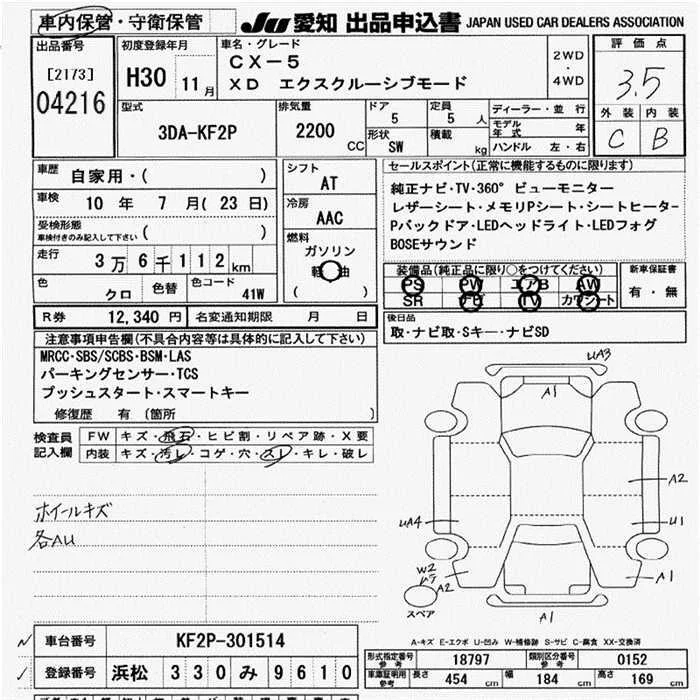 車内保管・守衛保管
JU 愛知 出品申込書 JAPAN USED CAR DEALERS ASSOCIATION
出品番号
[2173]
04216
初度登録年月
H30 11月
車名・グレード
CX-5
XD エクスクルーシブモード
2WD
・
4WD
評価点
3.5
外装 内装
C B
型式
3DA-KF2P
排気量
2200 CC
ドア
5
定員
5 人
形状
SW
積載
kg
ディーラー・並行
モデル年式 年
ハンドル 左・右
車歴 自家用・( )
車検 10 年 7 月(23 日)
受検形態
車検付きのみ記入して下さい ( )
走行 3万6千112km
色 クロ 色替 色コード 41W
シフト
AT
冷房
AAC
燃料
ガソリン
軽油
( )
セールスポイント(正常に機能するものに限ります)
純正ナビ・TV・360°ビューモニター
レザーシート・メモリPシート・シートヒーター
Pバックドア・LEDヘッドライト・LEDフォグ
BOSEサウンド
装備品(純正品に限り○をつけてください)
PS PW エアB AW
SR ナビ TV カワシート
新車保証書
有・無
R券 12,340 円 名変通知期限 月 日
後日品
取・ナビ取・Sキー・ナビSD
注意事項申告欄(不具合内容等は具体的に記入して下さい)
MRCC・SBS/SCBS・BSM・LAS
パーキングセンサー・TCS
プッシュスタート・スマートキー
修復歴 有 〔箇所 〕
検査員記入欄
FW キズ・飛石・ヒビ割・リペア跡・X要
内装 キズ・汚レ・コゲ・穴・スレ・キレ・破レ
ホイールキズ
各AU
UA3
A1
A2
UA4
U1
W2
A2
A1
A1
スペア
A-キズ E-エクボ U-凹み W-補修跡 S-サビ C-腐食 XX-交換済
車台番号 KF2P-301514
登録番号 浜松 330 み 9610
形式指定番号 参考 18797 類別区分番号 参考 0152
車庫証明用 参考 長さ 454 cm 幅 184 cm 高さ 169 cm